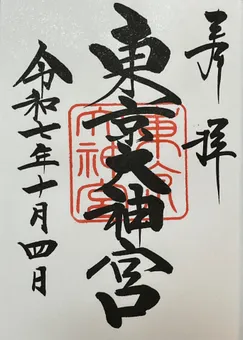 奉拝
東京大神宮
令和七年十月四日
東京大神宮